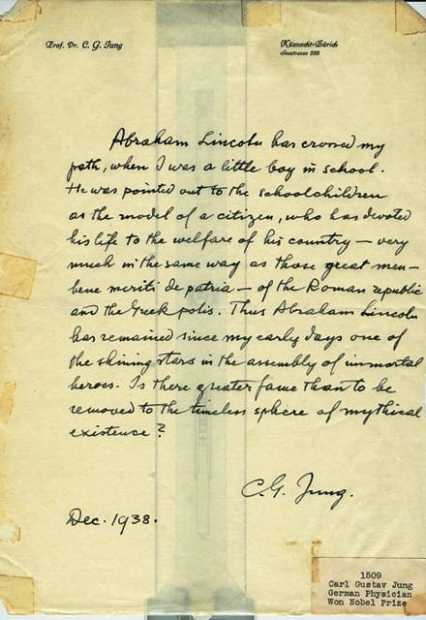 Prof. Dr. C. G. Jung
Küsnacht-Zürich
Seestrasse 228
Abraham Lincoln has crossed my
path, when I was a little boy in school.
He was pointed out to the schoolchildren
as the model of a citizen, who has devoted
his life to the welfare of his country – very
much in the same way as those great men –
bene meriti de patria – of the Roman republic
and the Greek polis. Thus Abraham Lincoln
has remained since my early days one of
the shining stars in the assembly of immortal
heroes. Is there greater fame than to be
removed to the timeless sphere of mythical
existence?
C. G. Jung.
Dec. 1938.
1509
Carl Gustav Jung
German Physician
Won Nobel Prize